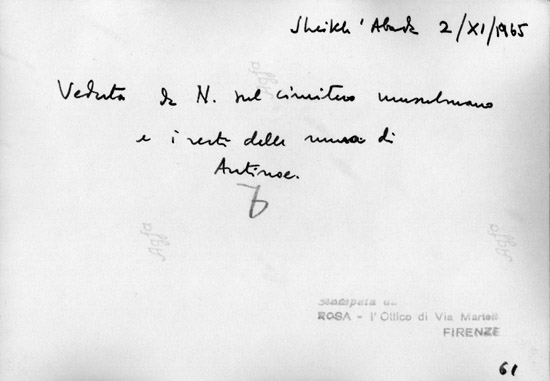 Sheikh 'Abada 2/XI/1965
Veduta da N. sul cimitero musulmano
e i resti delle mura di
Antinoe.
7
Stampata da
ROSA - l'Ottico di Via Martelli
FIRENZE
61